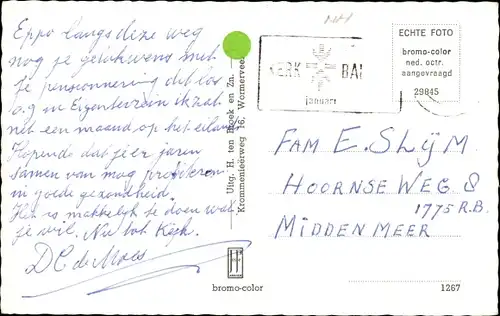 Eppo langs deze weg
nog je gelukwens met
je pensionnering dit las
o.g in Eigenterrein ik zat
net een maand op het eiland
Hopende dat je er jaren
samen van mag profiteren
in goede gezondheid
Het is makkelijk te doen wat
je wil. Nu tot Kijk.
Uitg. H. ten Broek en Zn.
Krommenieërweg 16, Wormerveer
KERK BAL
januari
ECHTE FOTO
bromo-color
ned. octr.
aangevraagd
29845
FAM E. SLIJM
HOORNSE WEG 8
1775 R.B.
MIDDENMEER
bromo-color
1267